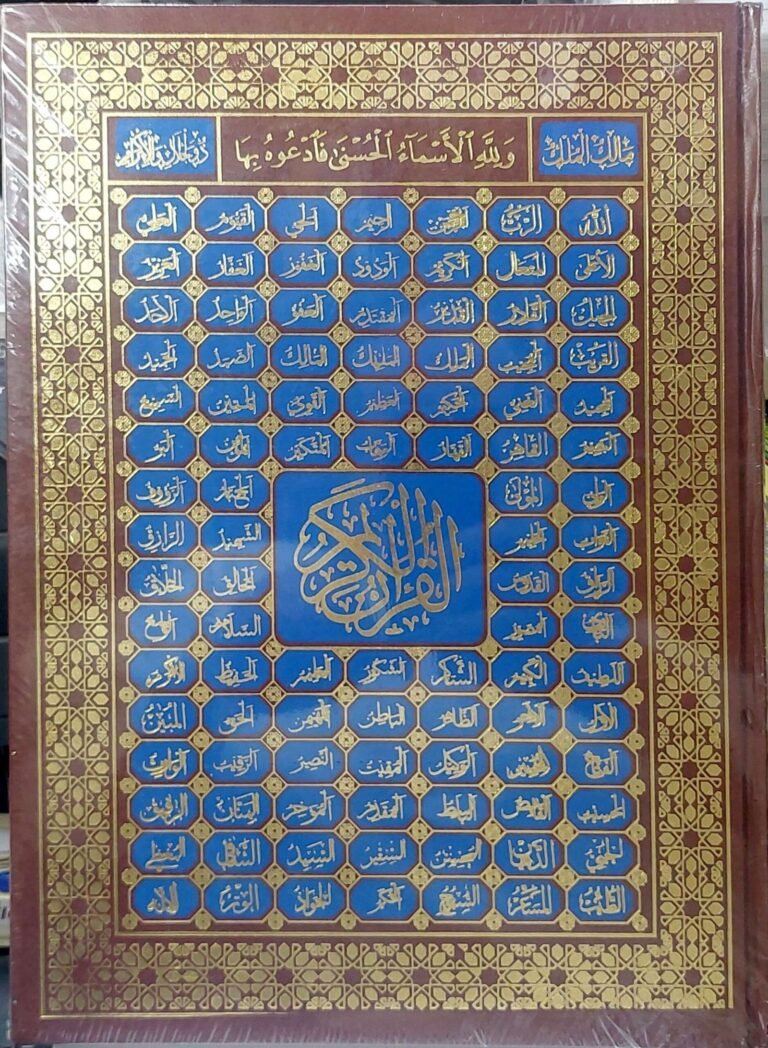 مالك الملك وَلِلَّهِ الْأَسْمَاءُ الْحُسْنَىٰ فَادْعُوهُ بِهَا ذو الجلال والإكرام
الله الرب الرحيم الحي القيوم العلي
الأعلى المتعال الكريم الودود الغفور الغفار العزيز
الجميل القادر القدير المقتدر العفو الواحد الأحد
القريب المجيب الملك المليك المالك الصمد الحميد
المجيد الغني الحكيم العظيم القوي المتين السميع
البصير القاهر القهار الوهاب المتكبر المؤمن البر
المولى الجبار الرؤوف
التواب الحليم الشهيد الرازق
الرزاق القدوس الخالق الخلاق
القرآن الكريم
السلام
اللطيف الكبير الشاكر الشكور العليم الحفيظ الأكرم
الأول الآخر الظاهر الباطن المهيمن الحق المبين
الفتاح المحيط الوكيل المقيت النصير الرقيب الوارث
الحسيب القابض الباسط المقدم المؤخر المنان الرفيق
الديان المحسن السيد الشافي المعطي
الطيب المسعر السبوح الحكم الجواد الوتر الإله